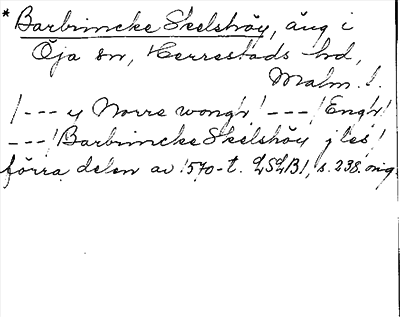 * Barbrincke Skelshöy, äng i
Öja sn, Herrestads hd,
Malm. l.
/--- y Norre wongh/ ---/Engh/
---/Barbrincke Skelshöy jles/
förra delen av 1570-t. LSLB1, s. 238. orig.